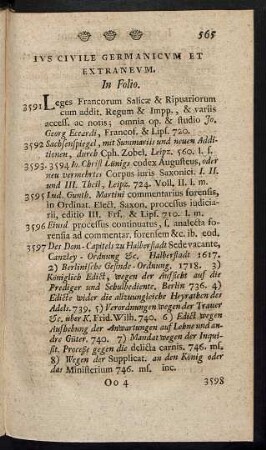 565
IVS CIVILE GERMANICVM ET
EXTRANEVM.
In Folio.
3591 Leges Francorum Salicæ & Ripuariorum
cum addit. Regum & Impp., & variis
access. ac notis; omnia op. & studio Jo.
Georg Eccardi, Francof. & Lipf. 720.
3592 Sachsenspiegel, mit Summariis und neuen Addi-
tionen, durch Cph. Zobel, Leipz. 560. l. f.
3593-3594 Jo. Christ Lünigs codex Augusteus, oder
neu vermehrtes Corpus juris Saxonici. I. II.
und III. Theil, Leipz. 724. Voll. II. l. m.
3595 Ind. Gvoth. Martini commentarius forensis,
in Ordinat. Elect. Saxon. processus judicia-
rii, editio III. Frf. & Lipf. 710. l. m.
3596 Eiusd. processus continuatus, f. analecta fo-
rensia ad commentar. forensem &c. ib. eod.
3597 Der Dom-Capitels zu Halberstadt Sede vacante,
Cantzley-Ordnung &c. Halberstadt 1617.
2) Berlinische Gesinde-Ordnung. 1718. 3)
Königlich Edict, wegen der Aufsicht auf die
Prediger und Schulbediente, Berlin 736. 4)
Edicte wider die allzuungleiche Heyrathen der
Adels. 739. 5) Verordnungen wegen der Trauer
&c. über K. Frid. Wilh. 740. 6) Edict wegen
Aufhebung der Anwartungen auf Lehne und an-
dre Güter. 740. 7) Mandat wegen der Inqui-
sit. Processe gegen die delicta carnis. 746. ms.
8) Wegen der Supplicat. an den König oder
das Ministerium 746. ms. inc.
Oo 4
3598